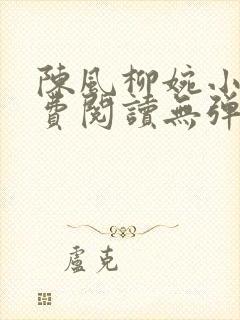 陳風柳婉小
費閱讀無彈
盧克